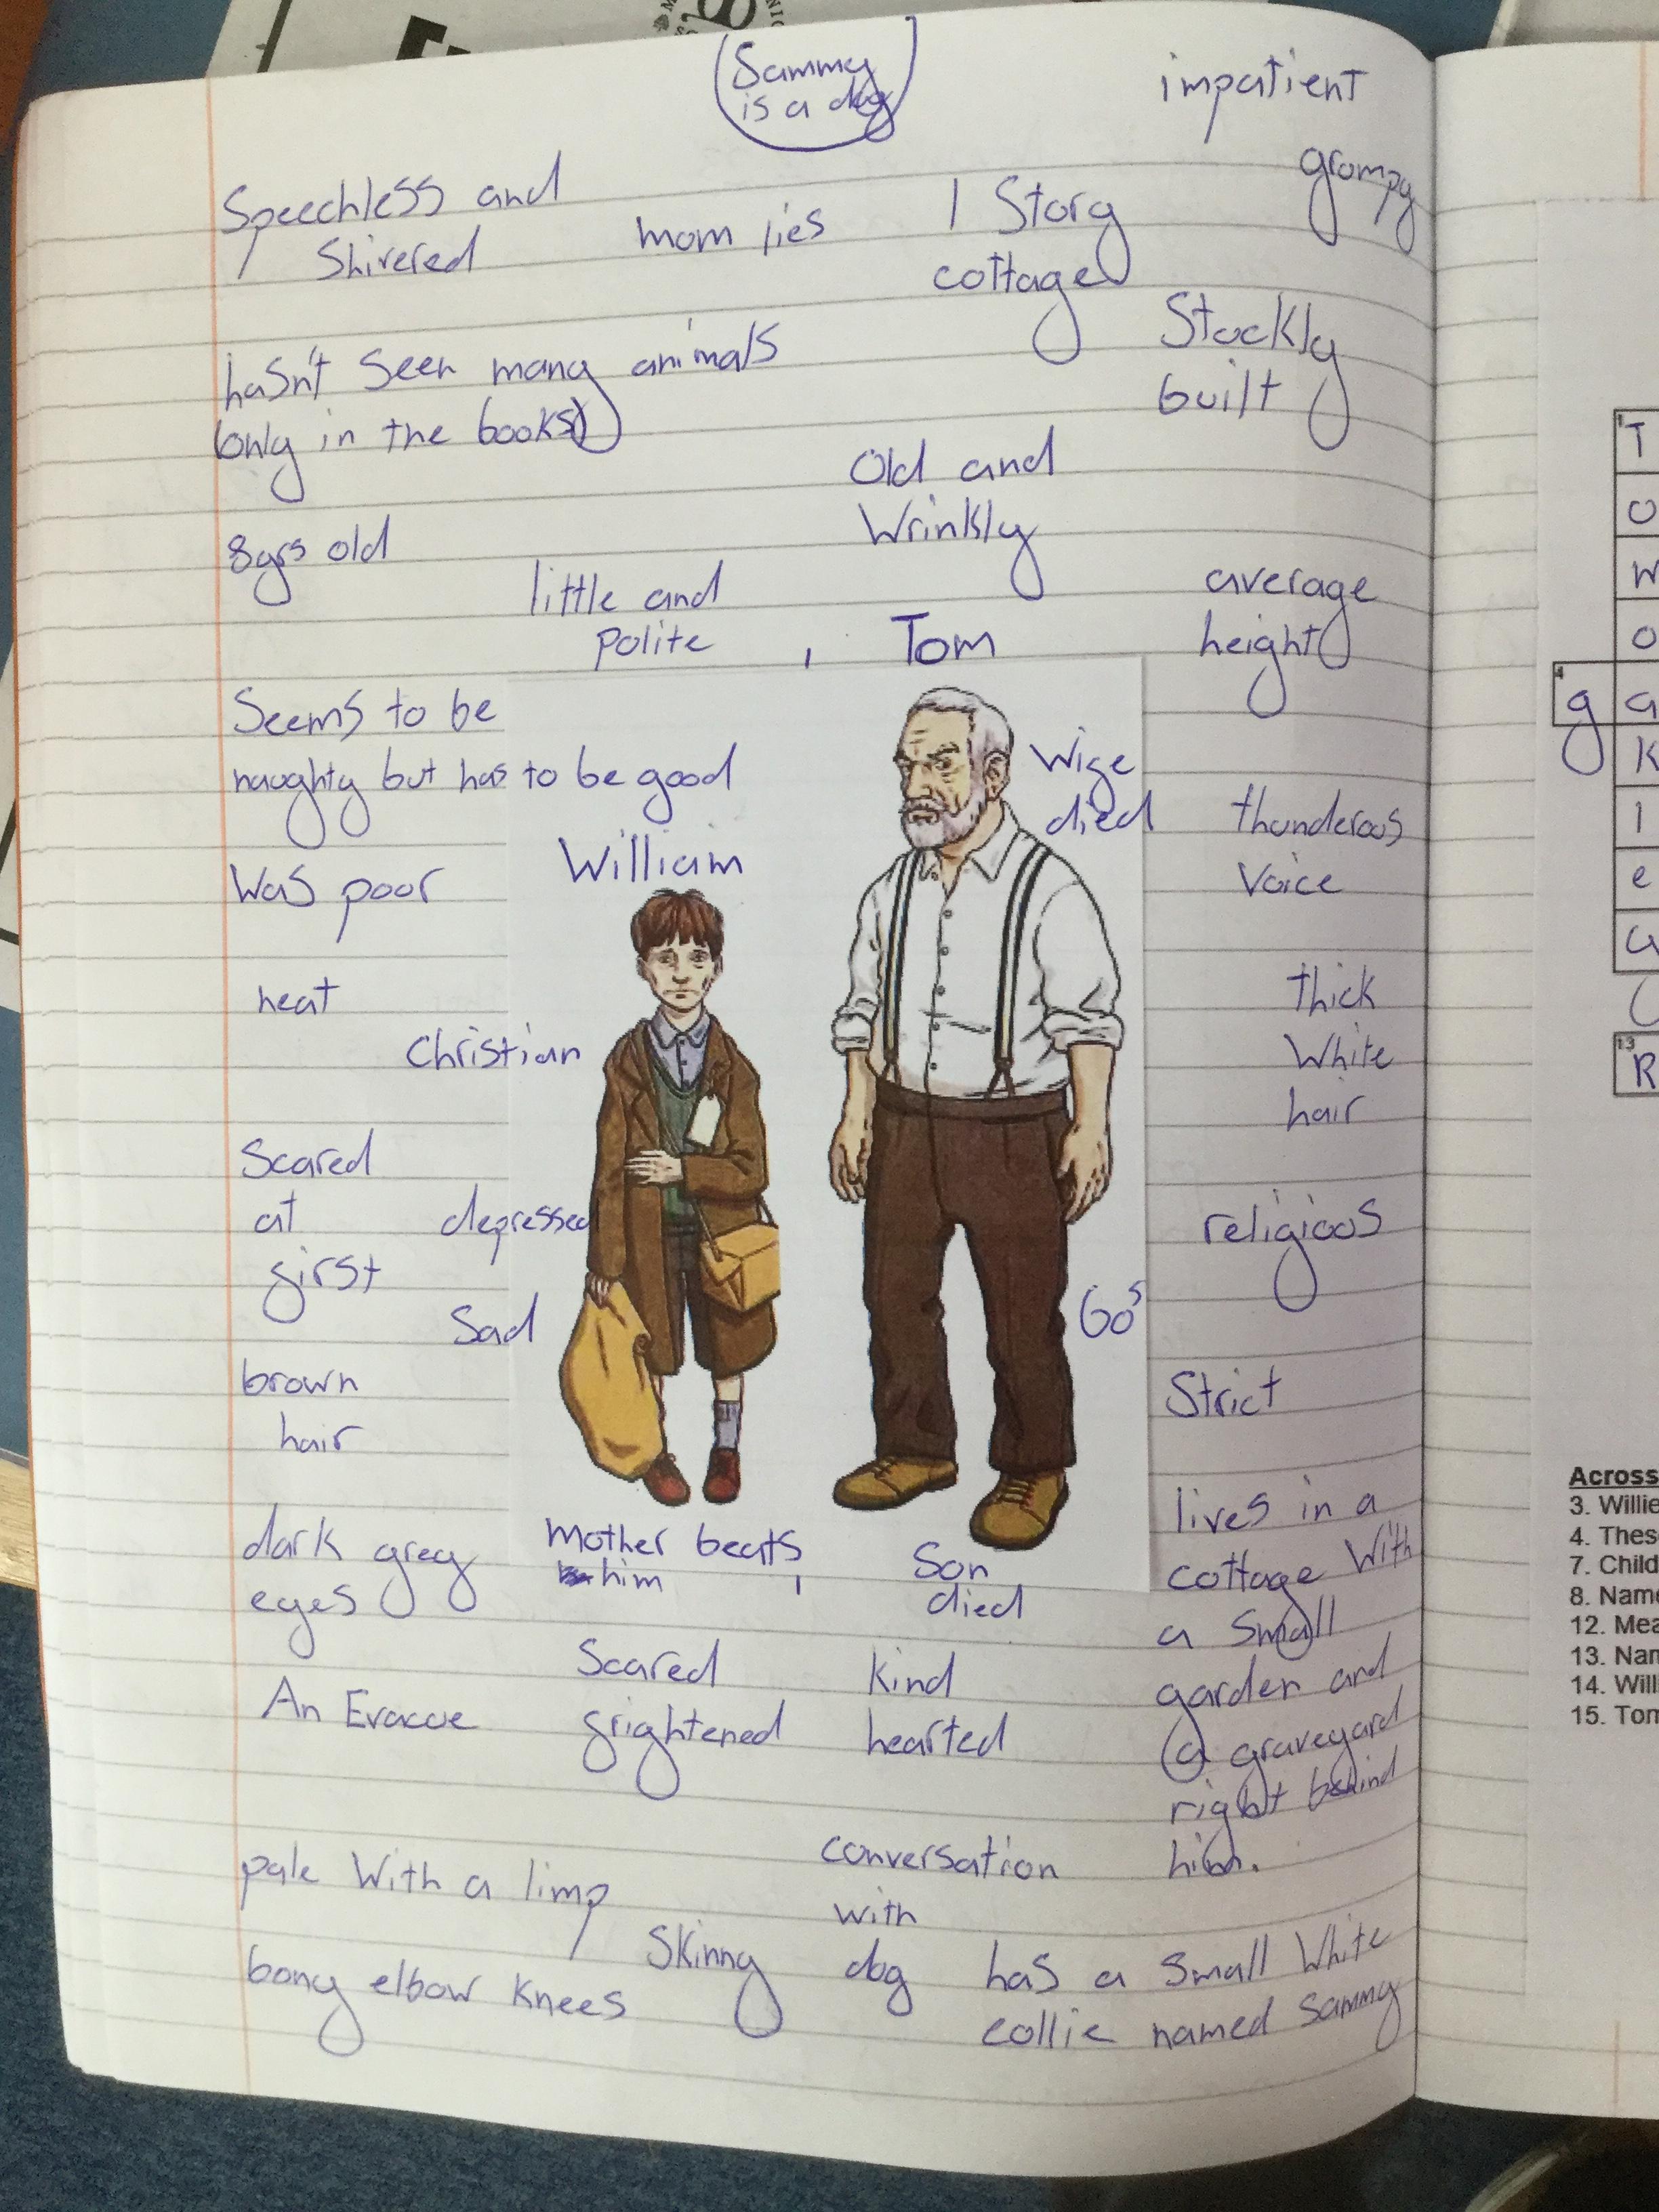 Sammy
is a dog
impatient
grumpy
Speechless and
Shivered
mom lies
1 Story
cottage
Stockly
built
hasn't seen many animals
(only in the books)
Old and
Wrinkly
8yrs old
little and
polite
Tom
average
height
Seems to be
naughty but has to be good
Wife
died
thunderous
Voice
William
Was poor
neat
Christian
thick
White
hair
Scared
at
first
depressed
religious
Sad
60s
brown
hair
Strict
dark grey
eyes
Mother beats
him
Son
died
lives in a
cottage With
a small
garden and
a graveyard
right behind
him.
Scared
frightened
kind
hearted
An Evacue
pale With a limp
conversation
with
dog
Skinny
bony elbow Knees
has a small White
collie named Sammy
T
o
w
o
4
g a
k
l
e
13
R
Across
3. Willie
4.
7. Child
8.
12.
13.
14.
15. Tom